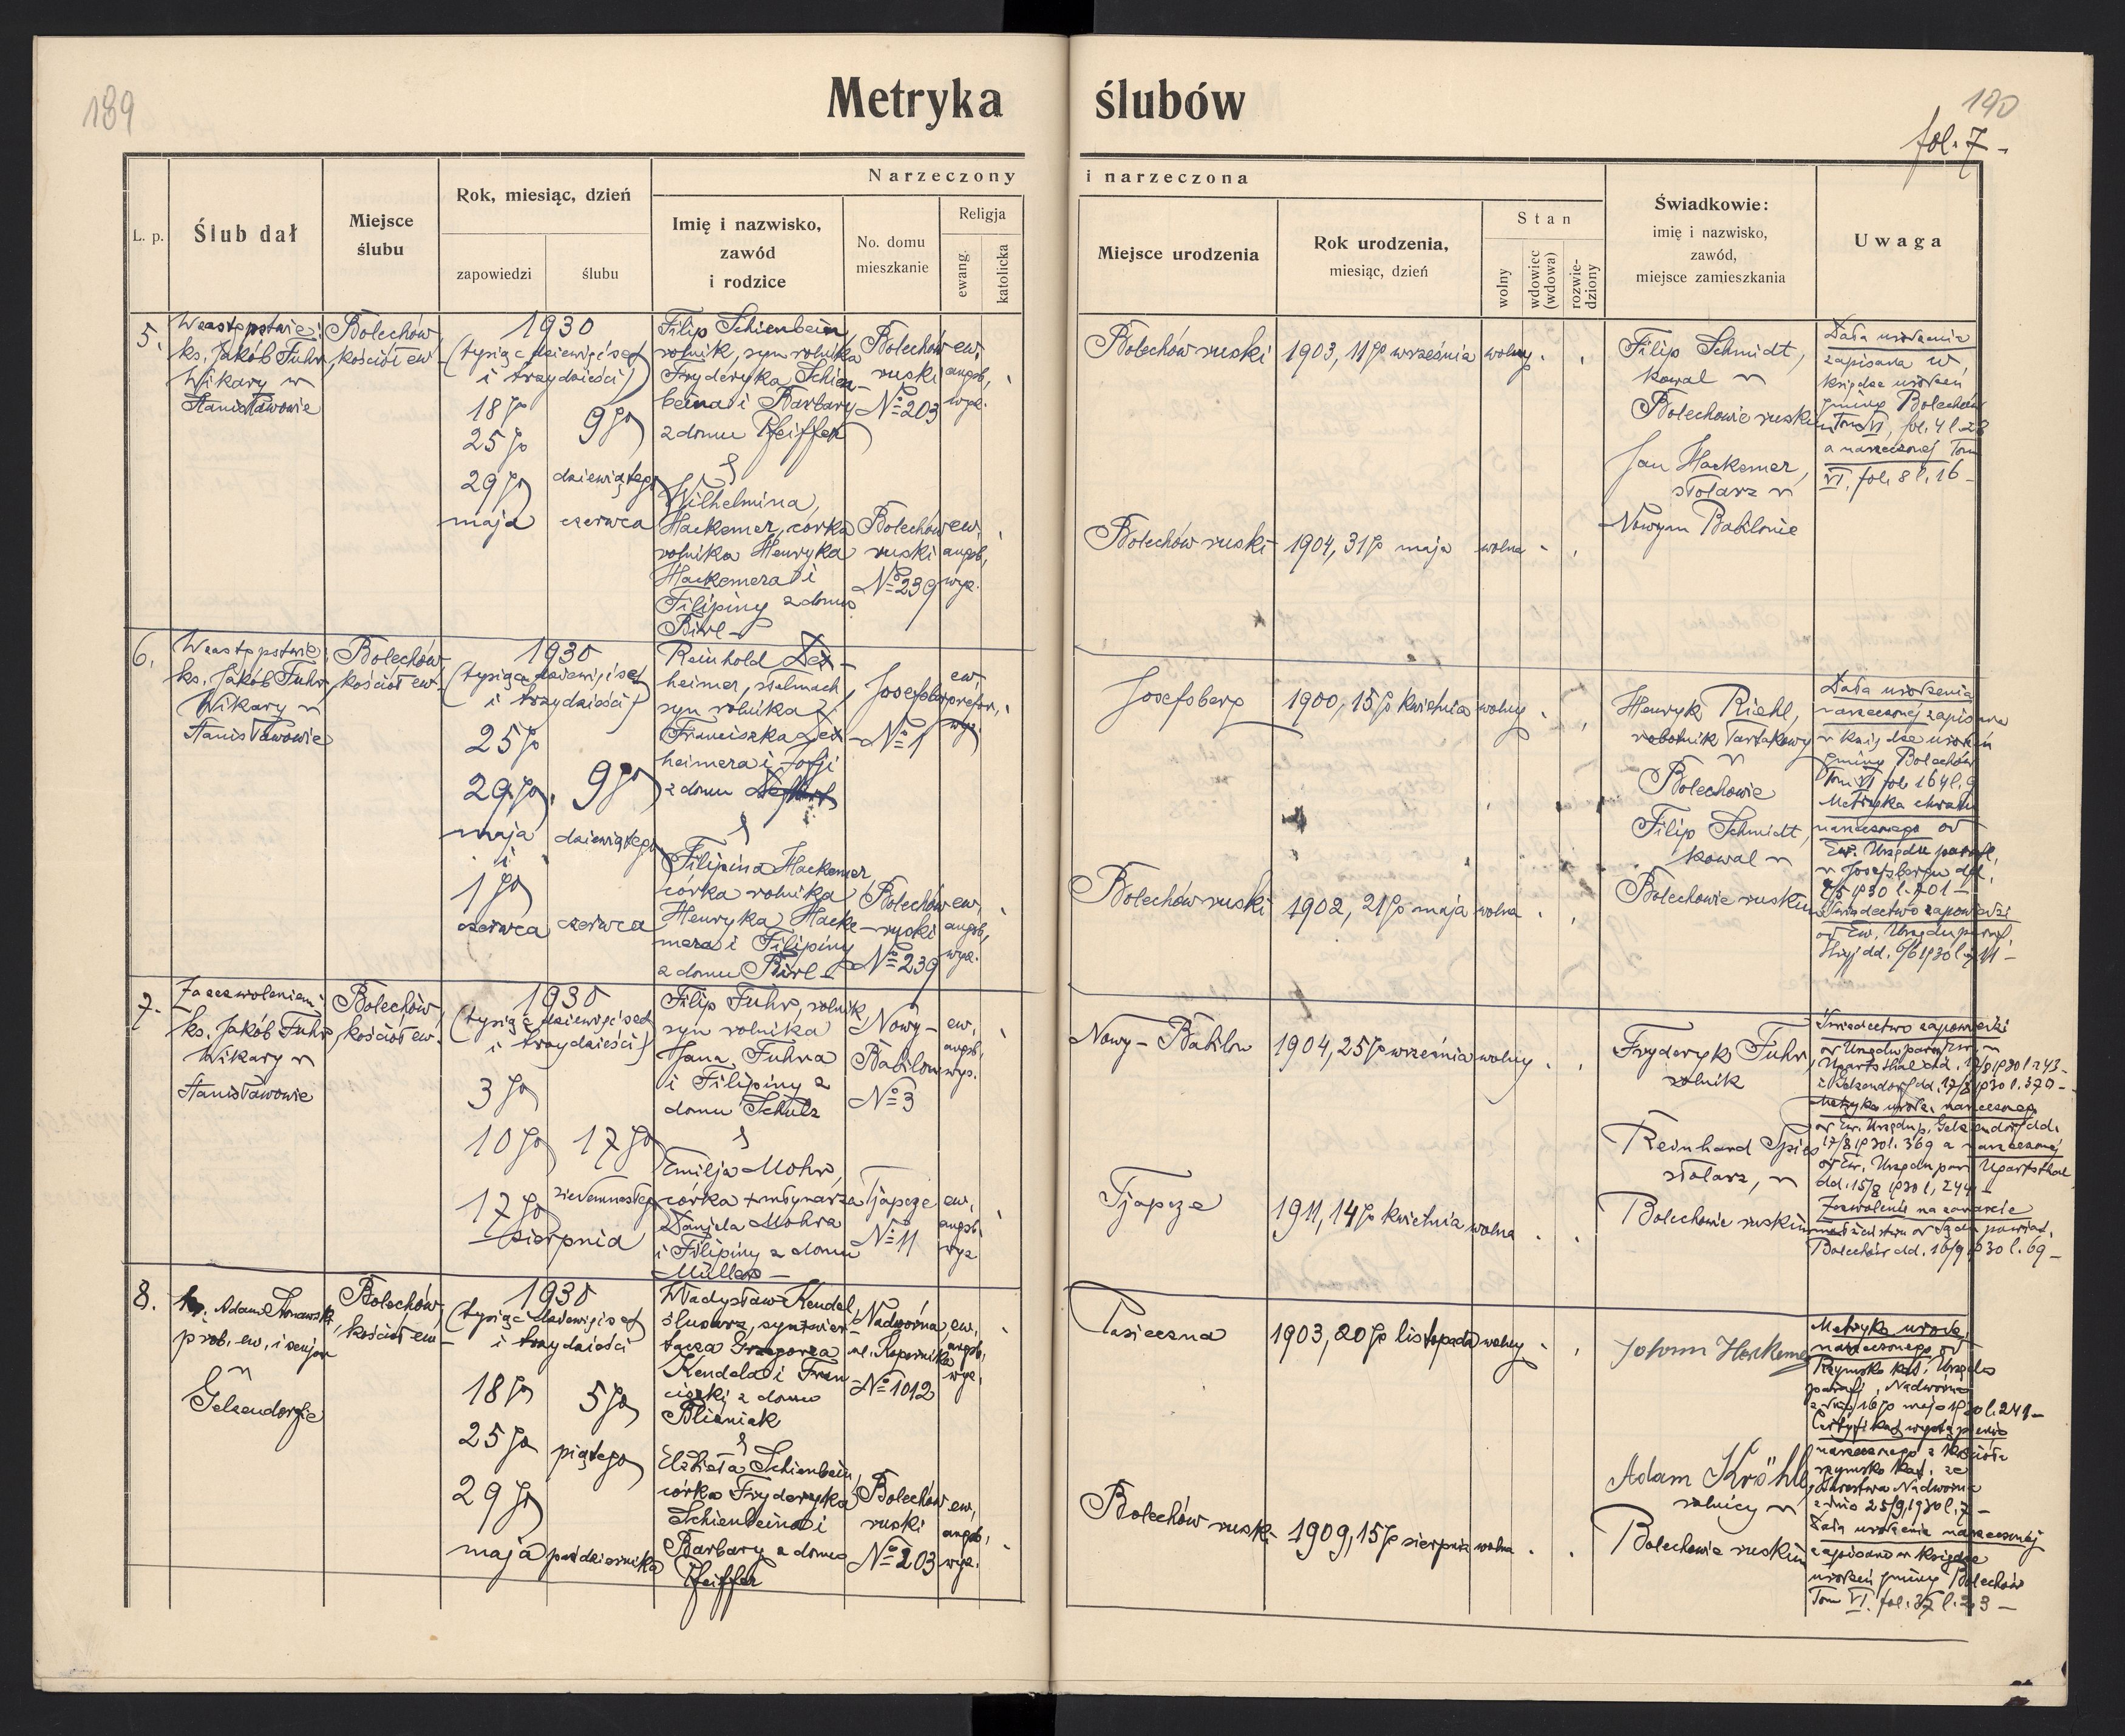 189
Metryka ślubów
190
fol. 7 -
Narzeczony i narzeczona
L. p.
Ślub dał
Miejsce
ślubu
Rok, miesiąc, dzień
zapowiedzi
ślubu
Imię i nazwisko,
zawód
i rodzice
No. domu
mieszkanie
Religja
ewang.
katolicka
Miejsce urodzenia
Rok urodzenia,
miesiąc, dzień
Stan
wolny
wdowiec
(wdowa)
rozwie-
dziony
Świadkowie:
imię i nazwisko,
zawód,
miejsce zamieszkania
Uwaga
5.
W zastępstwie:
ks. Jakób Fuhr,
Wikary w
Stanisławowie
Bolechów,
kościół ew.
1930
(tysiąc dziewięćset
i trzydzieści)
18go
25go
29go
maja
9go
dziewiątego
czerwca
Filip Schienbein,
rolnik, syn rolnika
Fryderyka Schien-
beina i Barbary
z domu Pfeiffer
i
Wilhelmina
Hackemer, córka
rolnika Henryka
Hackemera i
Filipiny z domu
Birl -
Bolechów
ruski
No 203
ew.
augsb.
wyz.
Bolechów
ruski
No 239
ew.
augsb.
wyz.
Bolechów ruski
1903, 11go września
wolny
Bolechów ruski
1904, 31go maja
wolna
Filip Schmidt,
kowal w
Bolechowie ruskim
Jan Hackemer,
stolarz w
Nowym Babilonie
Data urodzenia
zapisana w
księdze urodzeń
gminy Bolechów
Tom VI, fol. 4 l. 28
a narzeczonej Tom
VI. fol. 8 l. 16 -
6.
W zastępstwie:
ks. Jakób Fuhr,
Wikary w
Stanisławowie
Bolechów,
kościół ew.
1930
(tysiąc dziewięćset
i trzydzieści)
25go
29go
maja
i
1go
czerwca
9go
dziewiątego
czerwca
Reinhold
heimer, stelmach,
syn rolnika
Franciszka
heimera i Zofji
z domu
i
Filipina Hackemer
córka rolnika
Henryka Hacke-
mera i Filipiny
z domu Birl -
Josefsberg
No 1
ew.
refor.
wyz.
Bolechów
ruski
No 239
ew.
augsb.
wyz.
Josefsberg
1900, 15go kwietnia
wolny
Bolechów ruski
1902, 21go maja
wolna
Henryk Riehl,
robotnik Tartakowy
w
Bolechowie
Filip Schmidt,
kowal w
Bolechowie ruskim
Data urodzenia
narzeczonej zapisana
w księdze urodzeń
gminy Bolechów
Tom VI fol. 164 l. 9
Metryka chrztu
narzeczonego od
Ew. Urzędu parafl.
w Josefsbergu dd.
/5 1930 l. 201 -
Świadectwo zapowiedzi
od Ew. Urzędu paraf.
Stryj dd. 6/6 1930 l. 211 -
7.
Za zezwoleniem:
ks. Jakób Fuhr,
Wikary w
Stanisławowie
Bolechów,
kościół ew.
1930
(tysiąc dziewięćset
i trzydzieści)
3go
10go
17go
sierpnia
17go
siedemnastego
Filip Fuhr, rolnik,
syn rolnika
Jana Fuhra
i Filipiny z
domu Schulz
i
Emilja Mohr,
córka + młynarza
Daniela Mohra
i Filipiny z domu
Müller -
Nowy-
Babilon
No 3
ew.
augsb.
wyz.
Tjapcze
No 11
ew.
augsb.
wyz
Nowy - Babilon
1904, 25go września
wolny
Tjapcze
1911, 14go kwietnia
wolna
Fryderyk Fuhr,
rolnik
Reinhard Spies
stolarz, w
Bolechowie ruskim
Świadectwo zapowiedzi
od Urzędu paraf. ew. w
Ugartsthal dd. 17/8 1930 l. 243 -
i Gelsendorf dd. 17/8 1930 l. 370 -
Metryka urodz. narzeczonego
od Ew. Urzędu p. Gelsendorf dd.
17/8 1930 l. 369 a narzeczonej
od Ew. Urzędu par. Ugartsthal
dd. 15/8 1930 l. 244 -
Zezwolenie na zawarcie
małżeństwa od Sądu powiat.
Bolechów dd. 16/9 1930 l. 69 -
8.
ks. Adam Stonawski,
prob. ew. i senjor
w
Gelsendorfie
Bolechów,
kościół ew.
1930
(tysiąc dziewięćset
i trzydzieści
18go
25go
29go
maja
5go
piątego
października
Władysław Kendel,
ślusarz, syn wier-
tacza Grzegorza
Kendela i Fran-
ciszki z domu
Blizniak
i
Elżbieta Schienbein,
córka Fryderyka
Schienbeina i
Barbary z domu
Pfeiffer
Nadwórna,
ul. Kopernika
No 1012
ew.
augsb.
wyz.
Bolechów
ruski
No 203
ew.
augsb.
wyz.
Pasieczna
1903, 20go listopada
wolny
Bolechów ruski
1909, 15go sierpnia
wolna
Johann Hackemer
Adam Kröhl,
rolnicy w
Bolechowie ruskim
Metryka urodz.
narzeczonego od
Rzymsko kat. Urzędu
parafj. Nadwórna
z dnia 16go maja 1930 l. 241 -
Certyfikat wystąpienia
narzeczonego z kościoła
rzymsko kat. ze
Starostwa Nadwórna
z dnia 25/9 1930 l. 7 -
Data urodzenia narzeczonej
zapisano w księdze
urodzeń gminy Bolechów
Tom VI. fol. 37 l. 23 -